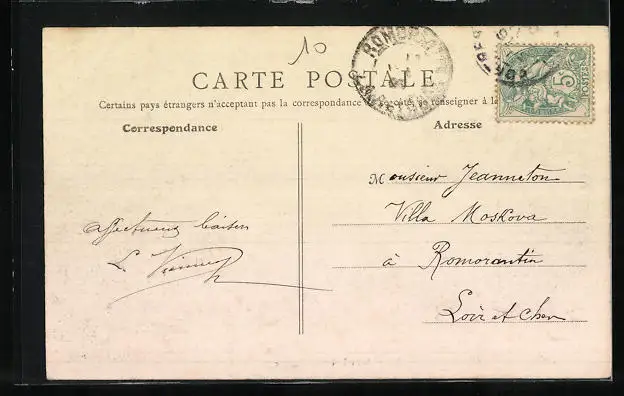 10
CARTE POSTALE
Certains pays étrangers n'acceptant pas la correspondance se renseigner à la
Correspondance
Adresse
Monsieur Jeanneton
Villa Moskova
à Romorantin
Loir et Cher
affectueux baiser
L.
ROMORANTIN
5
POSTES